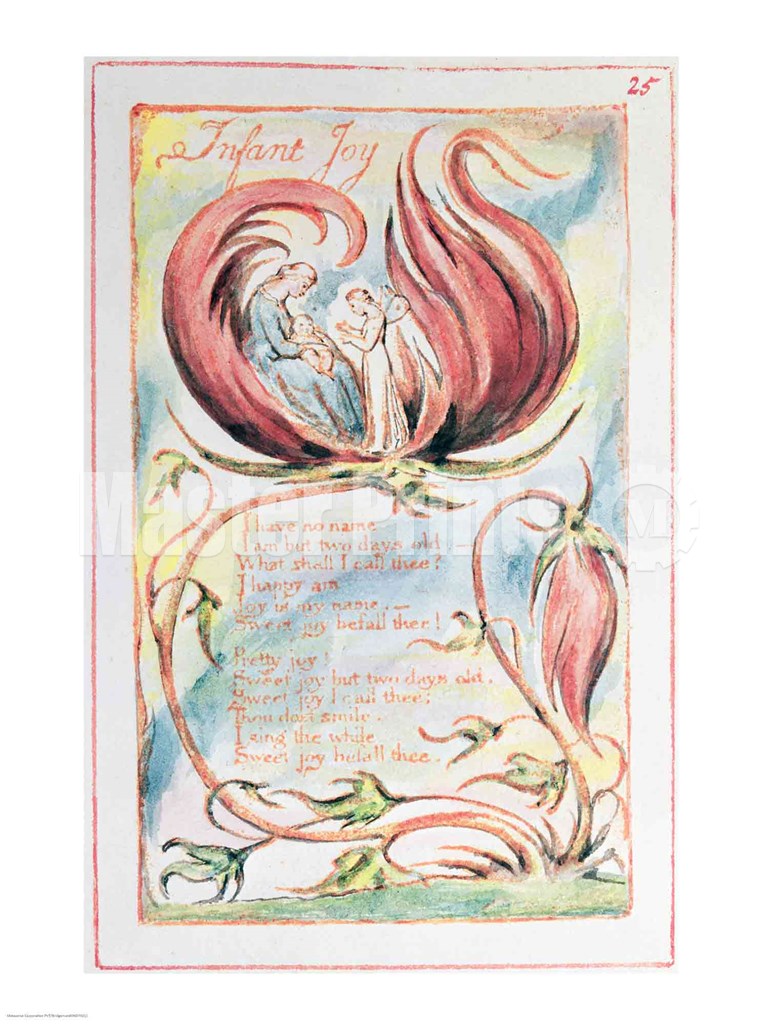 25
Infant Joy
I have no name
I am but two days old
What shall I call thee?
I happy am
Joy is my name. —
Sweet joy befall thee!
Pretty joy!
Sweet joy but two days old.
Sweet joy I call thee;
Thou dost smile.
I sing the while
Sweet joy befall thee.
Master Prints